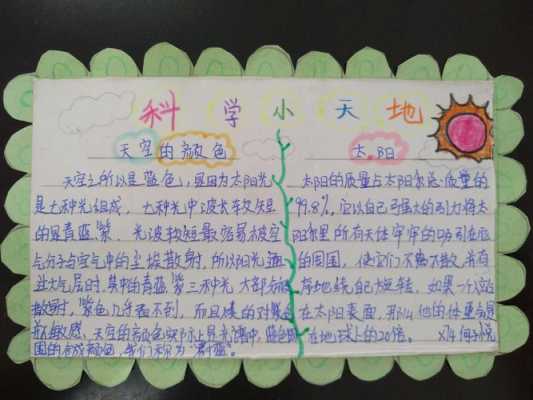 科学小天地
天空的颜色
天空之所以是蓝色,是因为太阳光
是七种光组成,七种光中波长较短
的是青蓝紫,光波较短最容易被空
气分子与空气中的尘埃散射,所以阳光
过大气层时,其中的青蓝紫三种光大部分
散射,紫色几乎看不到,而且
敏感,天空的颜色实际上是光谱中蓝色
的合成颜色,我们称为“
太阳
太阳的质量占太阳系总质量的
99.8%,它以自己强大的引力将太
阳系里所有天体牢牢的吸引在
的周围,使它们不离不散,井有
地绕自己旋转,如果一个人站
在太阳表面,那么他的体重会是
在地球上的20倍。